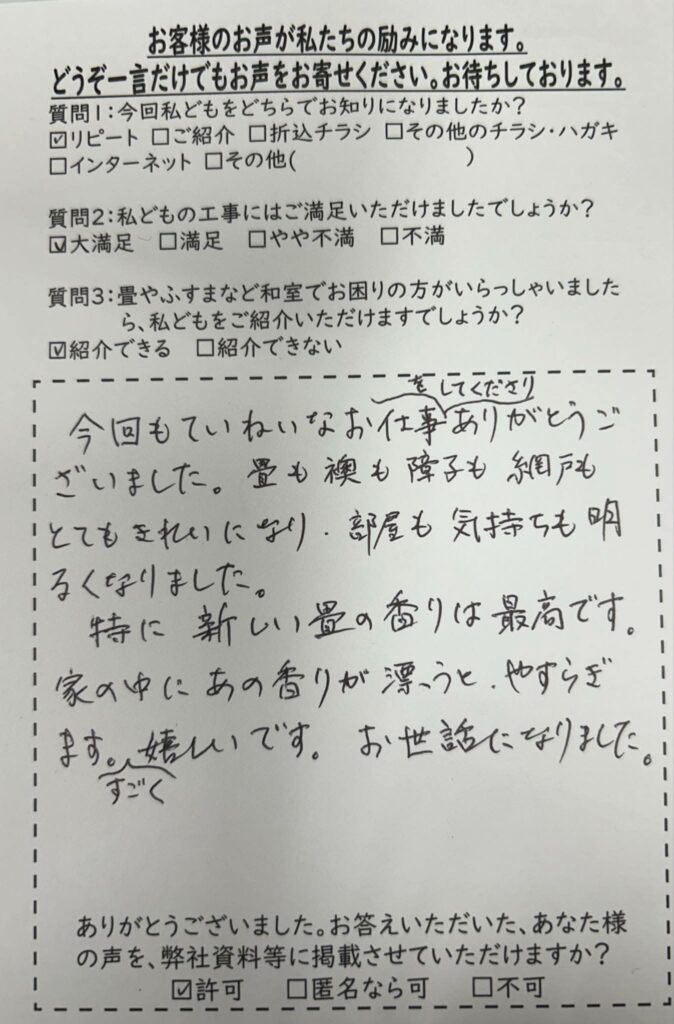 お客様のお声が私たちの励みになります。
どうぞ一言だけでもお声をお寄せください。お待ちしております。
質問1：今回私どもをどちらでお知りになりましたか？
☑リピート □ご紹介 □折込チラシ □その他のチラシ・ハガキ
□インターネット □その他( )
質問2：私どもの工事にはご満足いただけましたでしょうか？
☑大満足 □満足 □やや不満 □不満
質問3：畳やふすまなど和室でお困りの方がいらっしゃいました
ら、私どもをご紹介いただけますでしょうか？
☑紹介できる □紹介できない
をしてくださり
今回もていねいなお仕事ありがとうご
ざいました。畳も襖も障子も網戸も
とてもきれいになり、部屋も気持ちも明
るくなりました。
特に新しい畳の香りは最高です。
家の中にあの香りが漂うと、やすらぎ
ます。嬉しいです。お世話になりました。
すごく
ありがとうございました。お答えいただいた、あなた様
の声を、弊社資料等に掲載させていただけますか？
☑許可 □匿名なら可 □不可